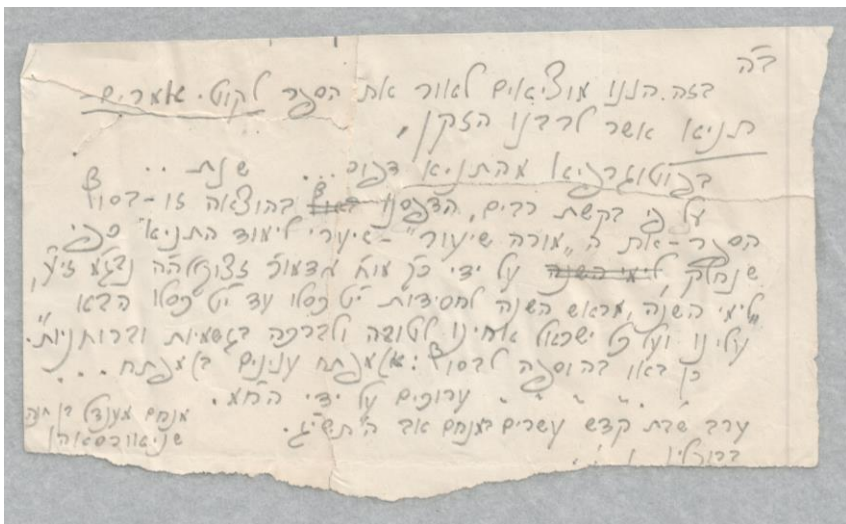 ב״ה
בזה הננו מוציאים לאור את הספר לקוטי אמרים -
תניא אשר לרבנו הזקן,
בפוטוגרפיא מהתניא דפוס ... שנת ...
על פי בקשת רבים, הדפסנו בהוצאה זו - בסוף
הספר - את ה״מורה שיעור״ - שיעורי לימוד התניא כפי
שנחלק, לימי השנה על ידי כ״ק מו״ח אדמו״ר זצוקללה״ה נבג״מ זי״ע,
״לימי השנה, מראש השנה לחסידות י״ט כסלו עד י״ט כסלו הבא
עלינו ועל כל ישראל אחינו לטובה ולברכה בגשמיות וברוחניות״.
כן באו בהוספה לבסוף: מפתח ענינים במפתח ...
ערוכים על ידי הח״מ.
מנחם מענדל בן חנה
שניאורסאהן
ערב שבת קדש עשרים במנחם אב ה׳תשי״ג.
ברוקלין